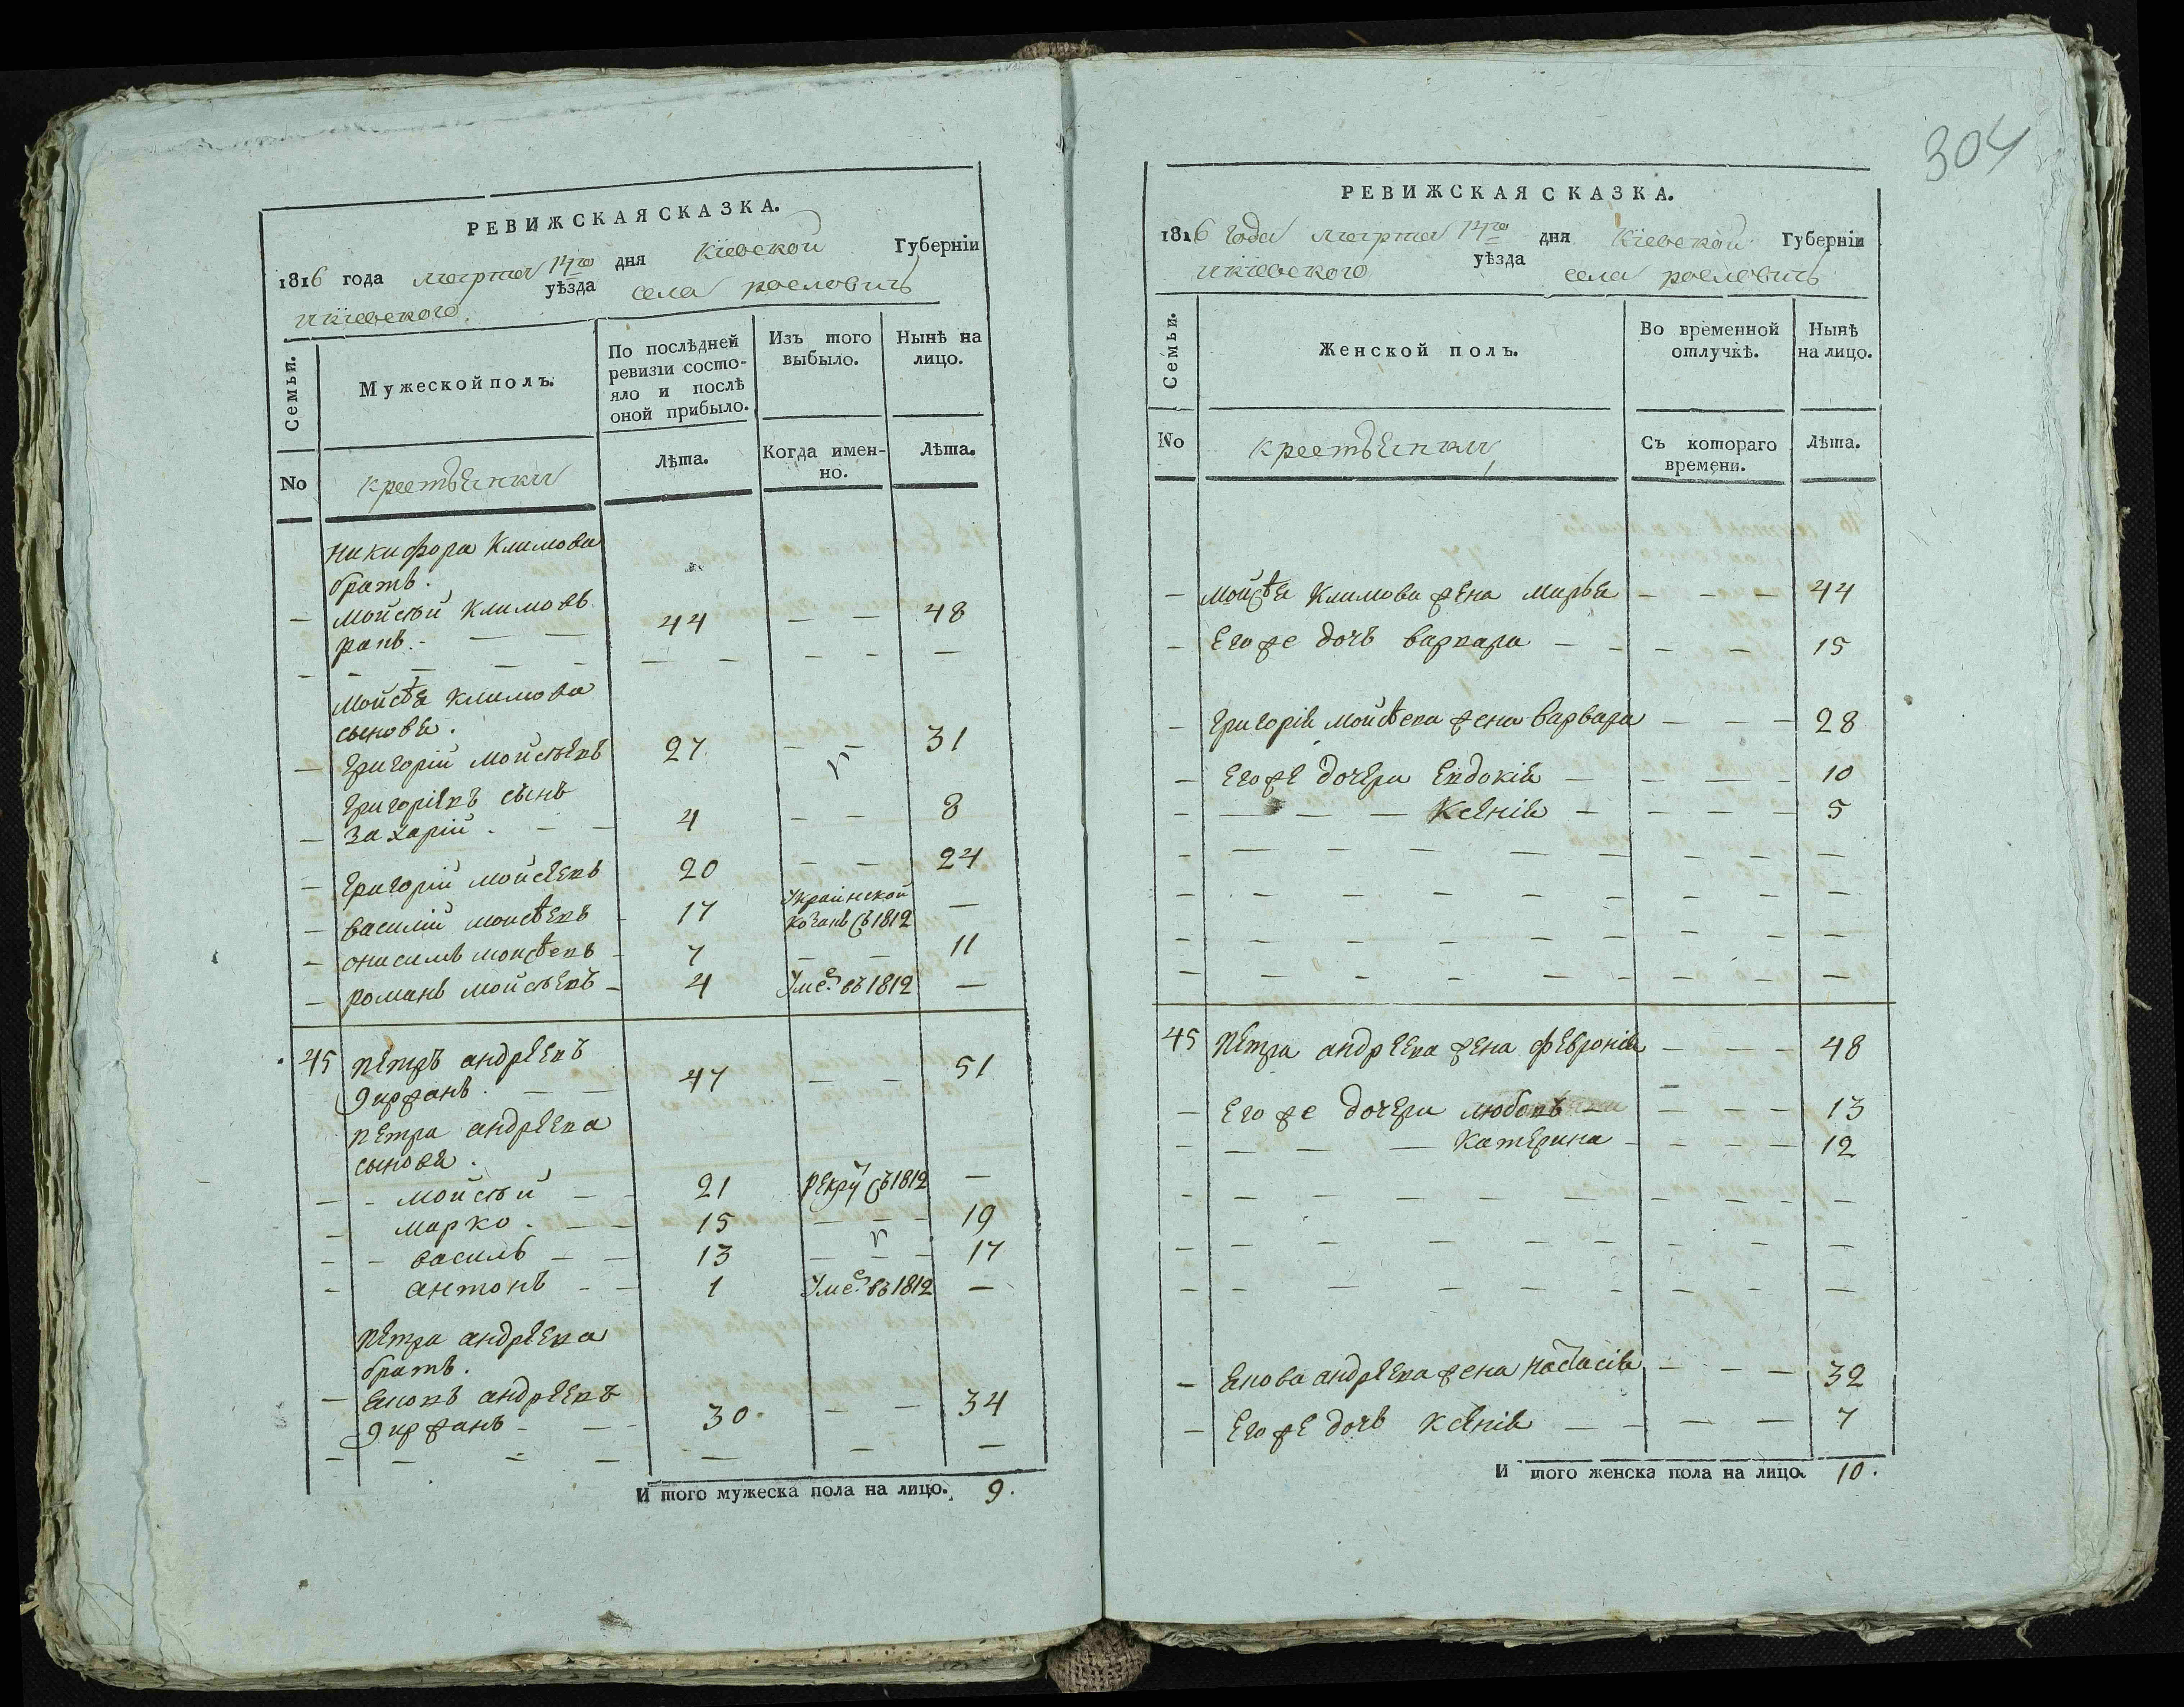 304
РЕВИЖСКАЯ СКАЗКА.
1816 года марта 14го дня Кіевской Губерніи
икіевского уѣзда села рославичь
Семьи.
Мужеской полъ.
По послѣдней ревизіи состо-
яло и послѣ
оной прибыло.
Изъ того
выбыло.
Нынѣ на
лицо.
No
Лѣта.
Когда имен-
но.
Лѣта.
Никифора Климова
братъ.
— Мойсѣй Климовъ
44 — — 48
Мойсѣя Климова
сыновя.
— Григорій Мойсѣевъ 27 — — 31
Григоріевъ сынъ
— Захарій. — — 4 — — 8
— Григорій Мойсѣевъ 20 — — 24
— Василій Мойсѣевъ 17 Украинской
козакъ въ 1812 —
— Онисимъ Мойсѣевъ 7 — — 11
— Романъ Мойсѣевъ 4 Уме: въ 1812 —
45 Петръ андрѣевъ
47 — — 51
Петра андрѣева
сыновя.
— Мойсѣй — 21 Рекру въ 1812 —
— Марко. — 15 — — 19
— Василь — 13 — — 17
— Антонъ — 1 Уме: въ 1812 —
Петра андрѣева
братъ.
— Яковъ андрѣевъ
30. — — 34
И того мужеска пола на лицо. 9.
РЕВИЖСКАЯ СКАЗКА.
1816 года марта 14го дня Кіевской Губерніи
икіевского уѣзда села рославичь
Семьи.
Женской полъ.
Во временной
отлучкѣ.
Нынѣ
на лицо.
No
Съ котораго
времени.
Лѣта.
— Мойсѣя Климова жена Марья — — — 44
— Его же дочь Варвара — — — 15
— Григорія Мойсѣева жена Варвара — — — 28
— Его же дочери Евдокія — — — 10
— — — Ксенія — — — 5
45 Петра андрѣева жена Февронія — — — 48
— Его же дочери Любовь — — — 13
— — — Катерина — — — 12
— Якова андрѣева жена Настасія — — 32
— Его же дочь Ксенія — — — 7
И того женска пола на лицо. 10.